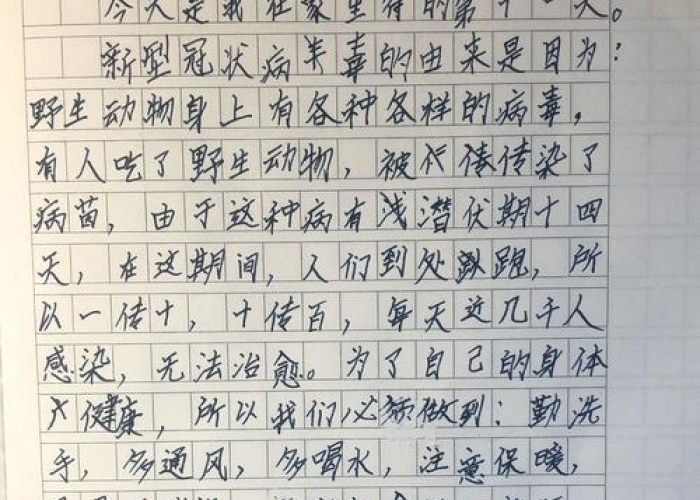 今天是我在家里待的第十一天。
新型冠状病毒的由来是因为：
野生动物身上有各种各样的病毒，
有人吃了野生动物，被传染了
病菌，由于这种病有潜伏期十四
天，在这期间，人们到处跑，所
以一传十，十传百，每天近几千人
感染，无法治愈。为了自己的身体
健康，所以我们必须做到：勤洗
手，多通风，多喝水，注意保暖，